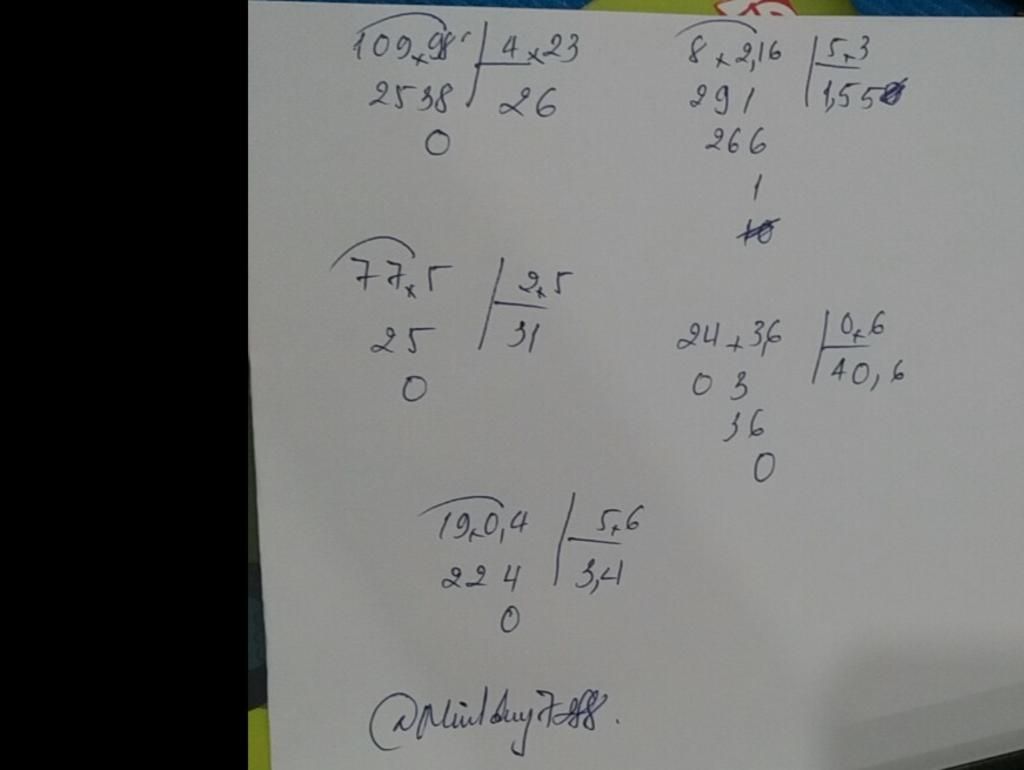 109,98 4,23
2538 26
0
8,2,16 5,3
291 1,55
266
1
10
77,5 2,5
25 31
0
24,36 0,6
0 3 40,6
36
0
19,0,4 5,6
224 3,4
0